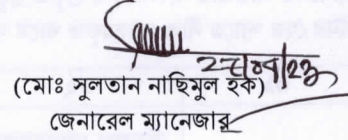 (মোঃ সুলতান নাছিমুল হক)
জেনারেল ম্যানেজার